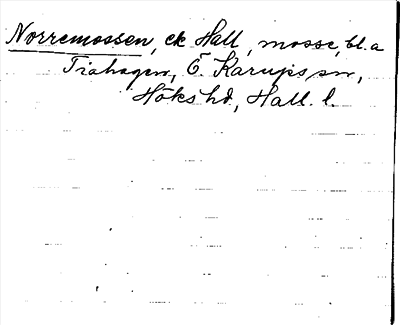 Norremossen, ck Hall, mosse, bl.a
Tiahagen, Ö. Karups sn,
Höks hd, Hall. l.